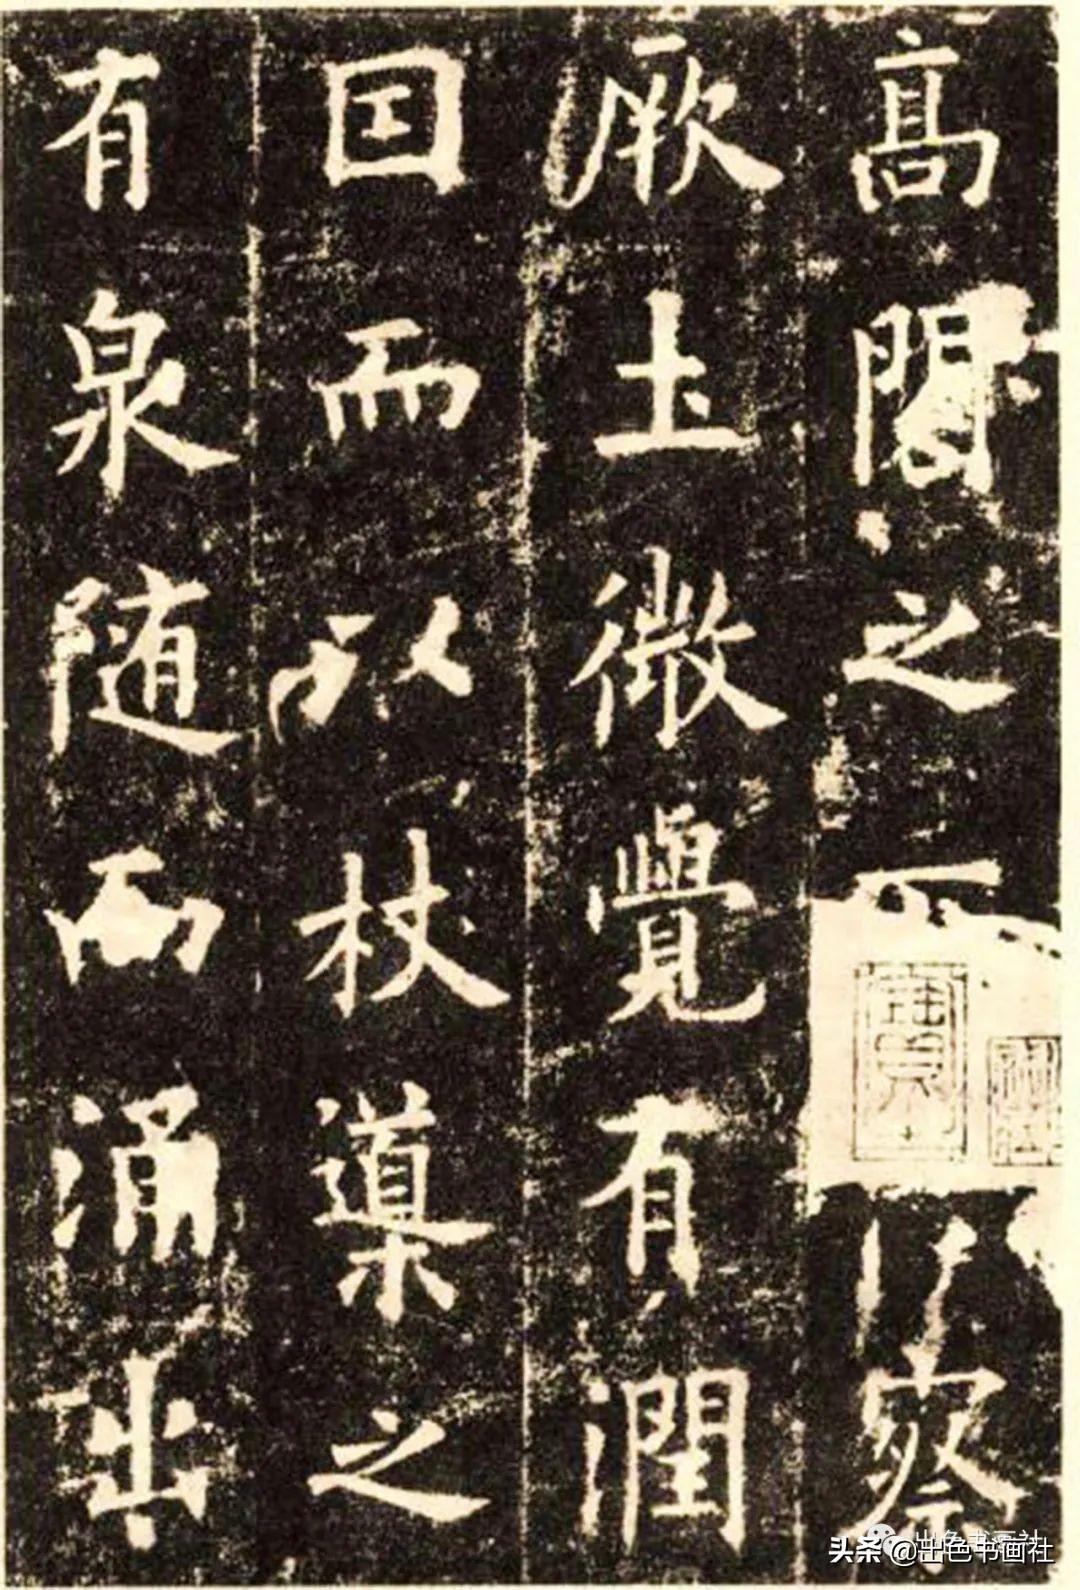 高閣之下察
厥土微覺有潤
因而以杖導之
有泉随而涌出
出色书画社
头条 @出色书画社